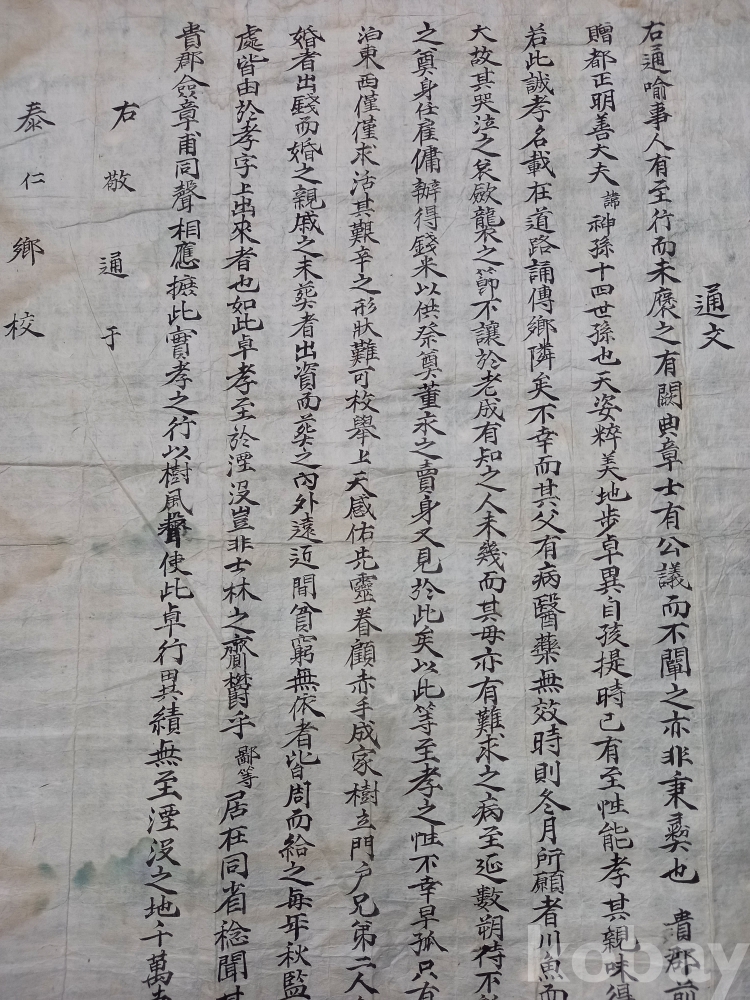 通文
右通喩事人有至行而未褒之有闕典章士有公議而不闡之亦非秉彛也 貴郡前
贈都正明善大夫 諱 神孫十四世孫也天姿粹美地步卓異自孩提時已有至性能孝其親味得
若此誠孝名載在道路誦傳鄉隣矣不幸而其父有病醫藥無效時則冬月所願者川魚而
大故其哭泣之哀斂襲之節不讓於老成有知之人未幾而其母亦有難求之病至延數朔待不
之奠身任雇傭辦得錢米以供祭奠董永之賣身又見於此矣以此等至孝之性不幸早孤只有
泊東西僅僅求活其艱辛之形狀難可枚擧上天感佑先靈眷顧赤手成家樹立門戶兄第二人
婚者出錢而婚之親戚之未葬者出資而葬之內外遠近間貧窮無依者皆周而給之每年秋監
處皆由於孝字上出來者也如此卓孝至於湮沒豈非士林之齎欝乎 鄙等 居在同省稔聞其
貴郡僉章甫同聲相應摭此實孝之行以樹風聲使此卓行異績無至湮沒之地千萬
右敬通于
泰仁鄉校
kobay